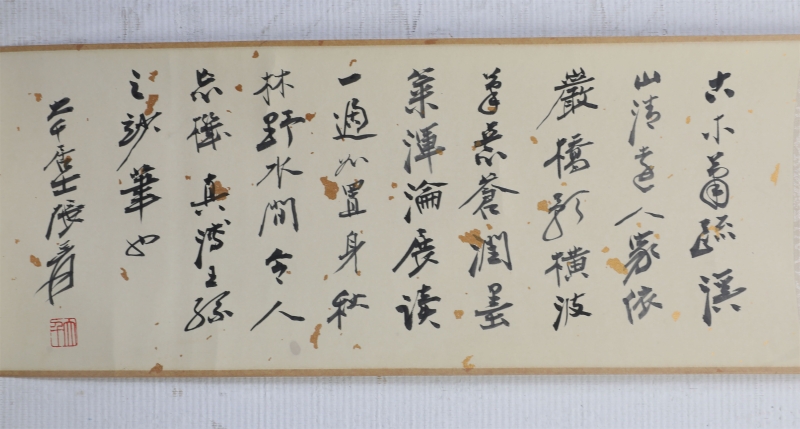 古木蕭疏溪
山清遠人家依
巖橋影橫波
筆意蒼潤墨
氣渾淪展讀
一過如置身秋
林野水間令人
忘機真濤王孫
之妙筆也
大千居士張爰